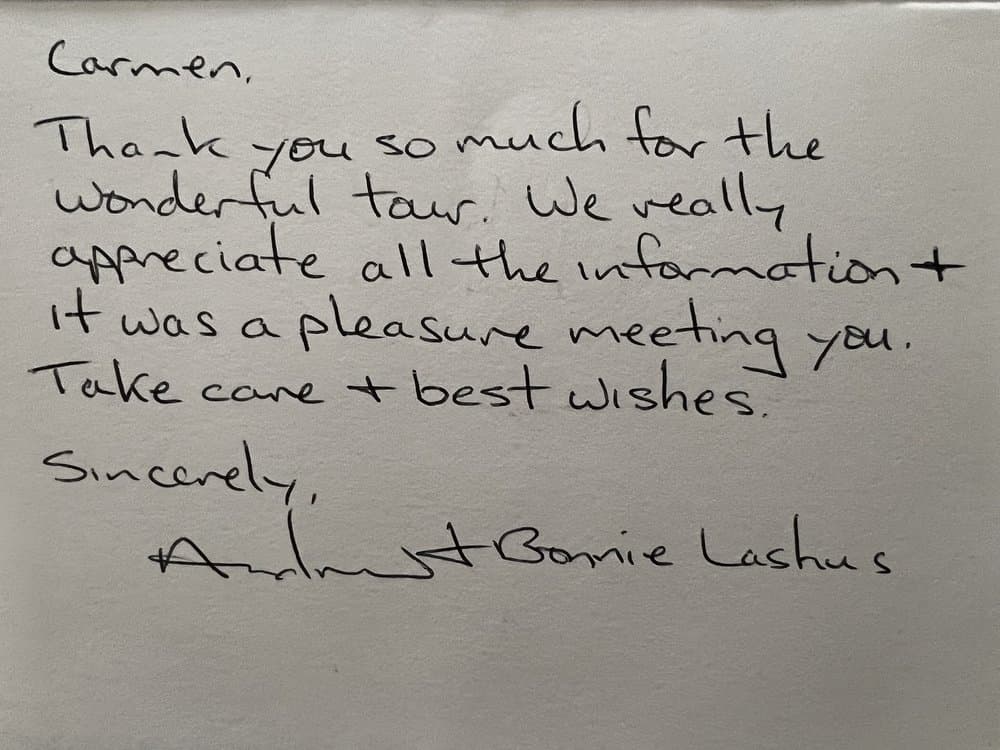 Carmen,
Thank you so much for the
wonderful tour. We really
appreciate all the information +
it was a pleasure meeting you.
Take care + best wishes.
Sincerely,
+ Bonnie Lashus